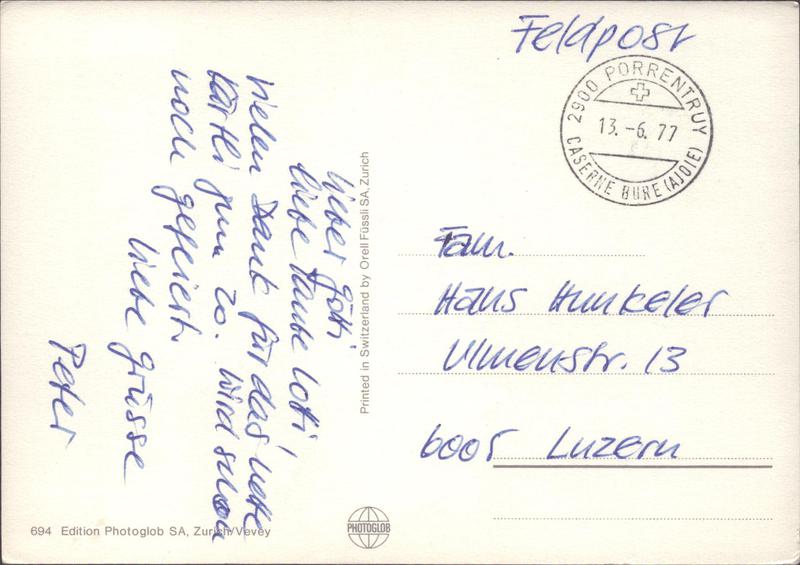 Feldpost
2900 PORRENTRUY
13.-6.77
CASERNE BURE (AJOIE)
Lieber Götti
liebe Tante Lotti!
Vielen Dank für das nette
Kärtli zum 20. Wird schon
noch gefeiert.
liebe Grüsse
Peter
Printed in Switzerland by Orell Füssli SA, Zurich
Fam.
Hans Hunkeler
Ulmenstr. 13
6005 Luzern
694 Edition Photoglob SA, Zurich/Vevey
PHOTOGLOB